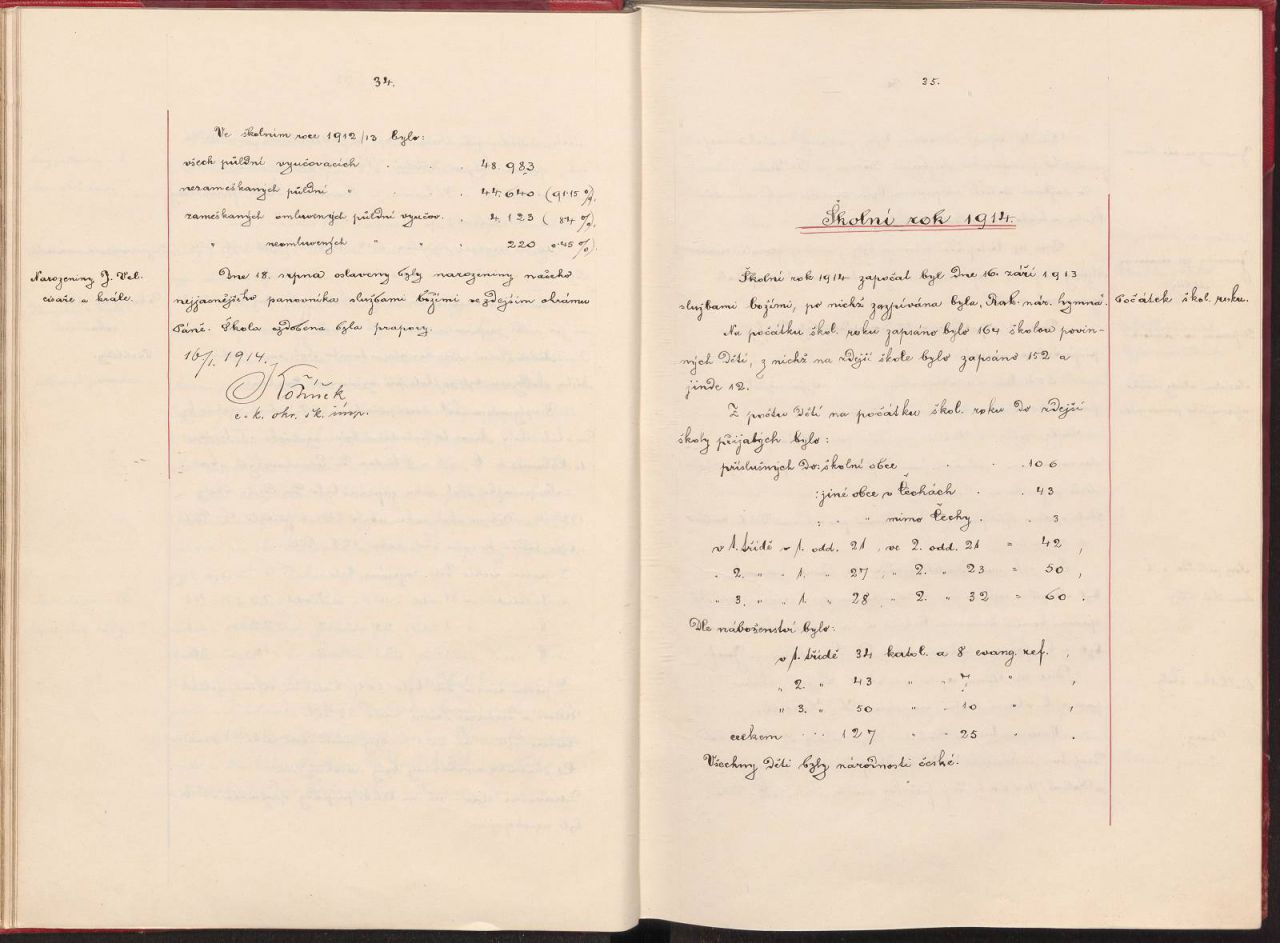 34.
Ve školním roce 1912/13 bylo:
všech půldní vyučovacích . . . 48.983
nezameškaných půldní " . . 44.640 (91·15 %).
zameškaných omluvených půldní vyučov. . 4.123 ( 8·4 %),
" neomluvených " " . 220 0·45 %).
Narozeniny J. Vel.
císaře a krále.
Dne 18. srpna oslaveny byly narozeniny našeho
nejjasnějšího panovníka službami božími ve zdejším chrámu
Páně. Škola ozdobena byla prapory.
16/1. 1914.
Kořínek
c. k. okr. šk. insp.
35.
Školní rok 1914.
Školní rok 1914 započat byl dne 16. září 1913
službami božími, po nichž zazpívána byla, Rak. nár. hymna.
Počátek škol. roku.
Na počátku škol. roku zapsáno bylo 164 školou povin-
ných dětí, z nichž na zdejší škole bylo zapsáno 152 a
jinde 12.
Z počtu dětí na počátku škol. roku do zdejší
školy přijatých bylo:
příslušných do: školní obce . . . 106
: jiné obce v Čechách . . 43
: " " mimo Čechy . . 3
v 1. třídě v 1. odd. 21, ve 2. odd. 21 = 42,
" 2. " " 1. " 27, " 2. " 23 = 50,
" 3. " " 1. " 28, " 2. " 32 = 60.
Dle náboženství bylo:
v 1. třídě 34 katol. a 8 evang. ref.,
" 2. " 43 " " 7 " ,
" 3. " 50 " " 10 " ,
celkem . . . 127 " " 25 " .
Všechny děti byly národnosti české.